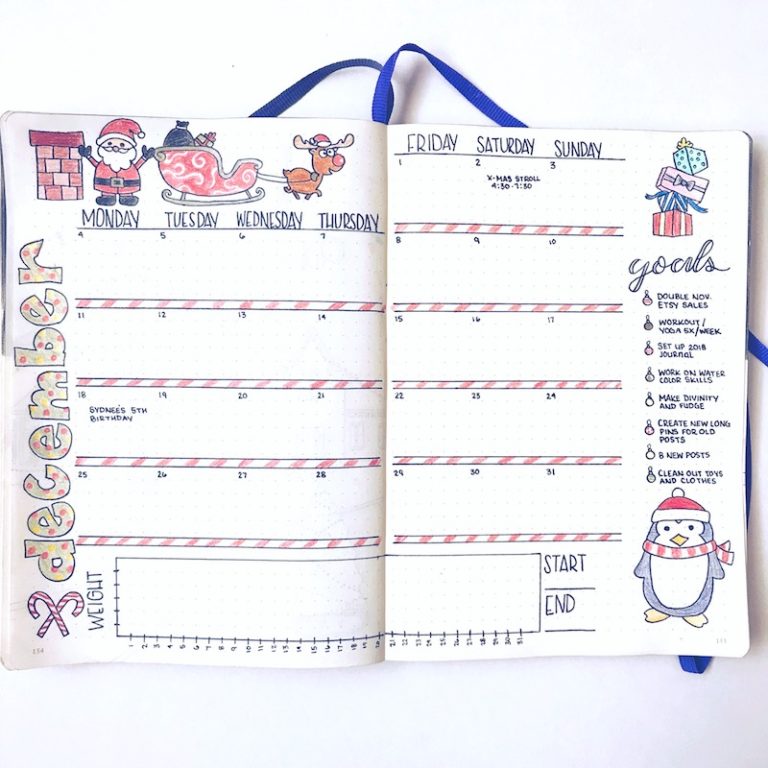 december
MONDAY TUESDAY WEDNESDAY THURSDAY
4 5 6 7
11 12 13 14
18 19 20 21
SYDNEE'S 5TH
BIRTHDAY
25 26 27 28
WEIGHT
1 2 3 4 5 6 7 8 9 10 11 12 13 14 15 16 17 18 19
FRIDAY SATURDAY SUNDAY
1 2 3
X-MAS STROLL
4:30-7:30
8 9 10
15 16 17
22 23 24
29 30 31
START
END
21 22 23 24 25 26 27 28 29 30 31
goals
DOUBLE NOV.
ETSY SALES
WORKOUT/
YOGA 5X/WEEK
SET UP 2018
JOURNAL
WORK ON WATER
COLOR SKILLS
MAKE DIVINITY
AND FUDGE
CREATE NEW LONG
PINS FOR OLD
POSTS
8 NEW POSTS
CLEAN OUT TOYS
AND CLOTHES